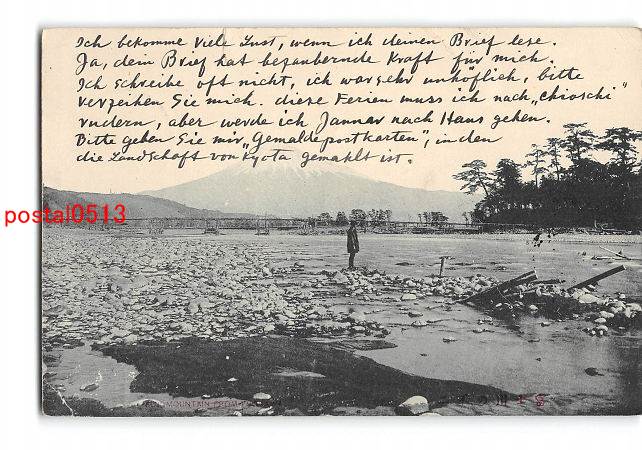 Ich bekomme viele Lust, wenn ich deinen Brief lese.
Ja, dein Brief hat bezaubernde Kraft für mich.
Ich schreibe oft nicht, ich war sehr unhöflich, bitte
verzeihen Sie mich. diese Ferien muss ich nach „Chioschi"
rudern, aber werde ich Januar nach Haus gehen.
Bitte geben Sie mir „Gemaldepostkarten", in den
die Landschaft von Kyota gemahlt ist.
postal0513
MOUNTAIN FROM